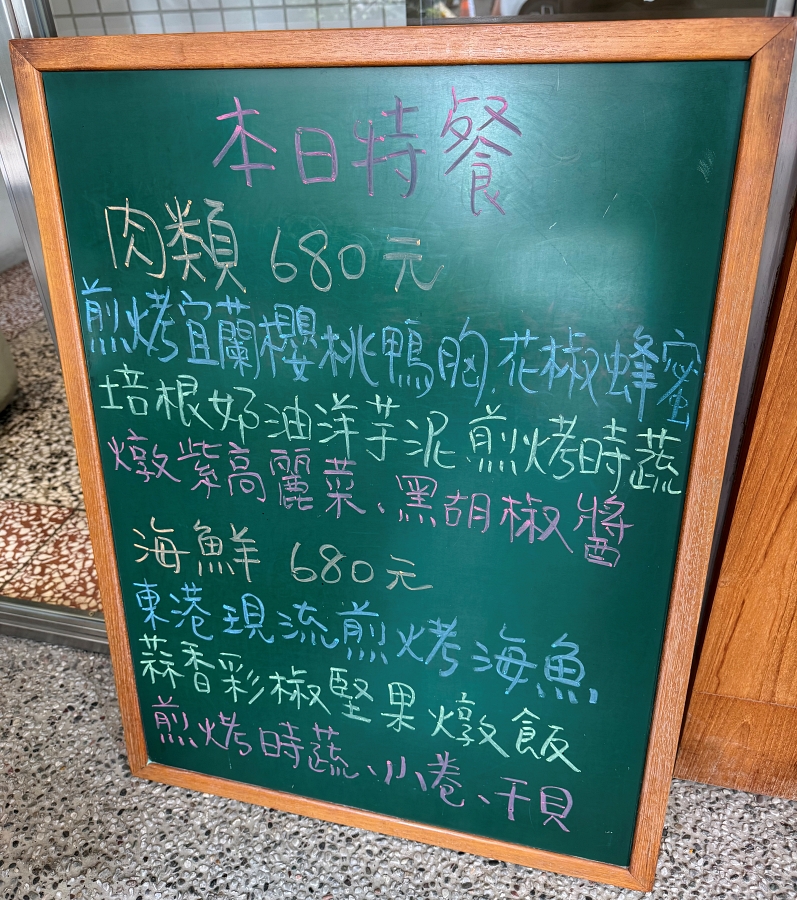 本日特餐
肉類 680元
煎烤宜蘭櫻桃鴨胸、花椒蜂蜜
培根奶油洋芋泥、煎烤時蔬
燉紫高麗菜、黑胡椒醬
海鮮 680元
東港現流煎烤海魚
蒜香彩椒堅果燉飯
煎烤時蔬、小卷、干貝